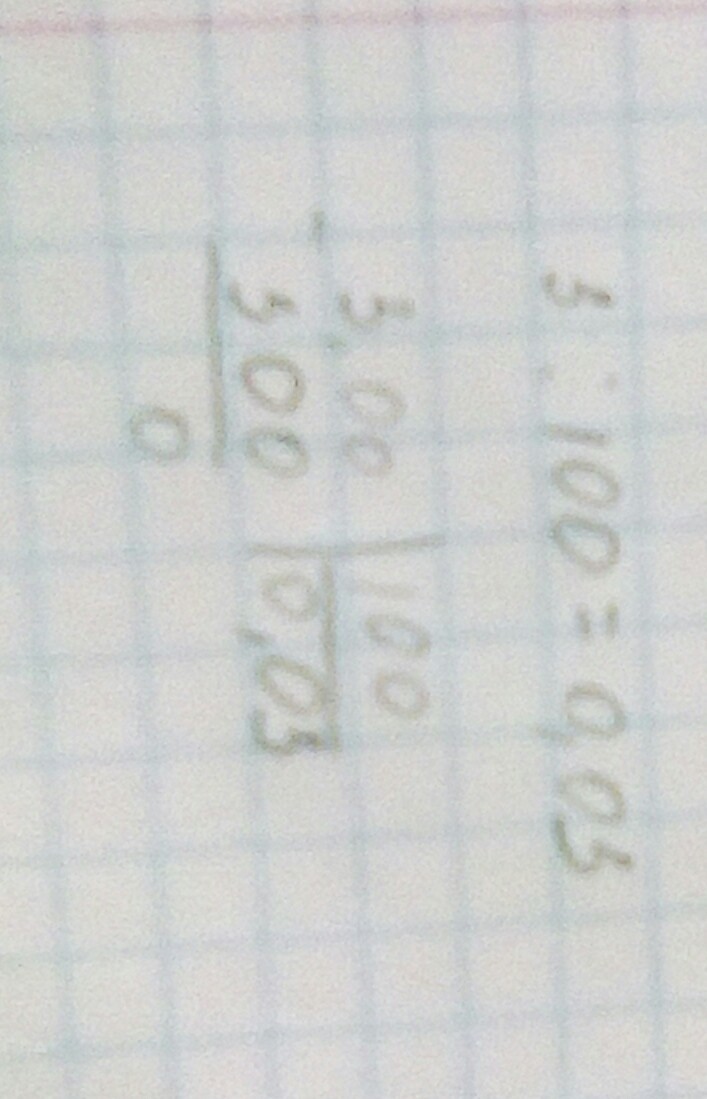 3 : 100 = 0,03
- 3,00 | 100
300 | 0,03
0